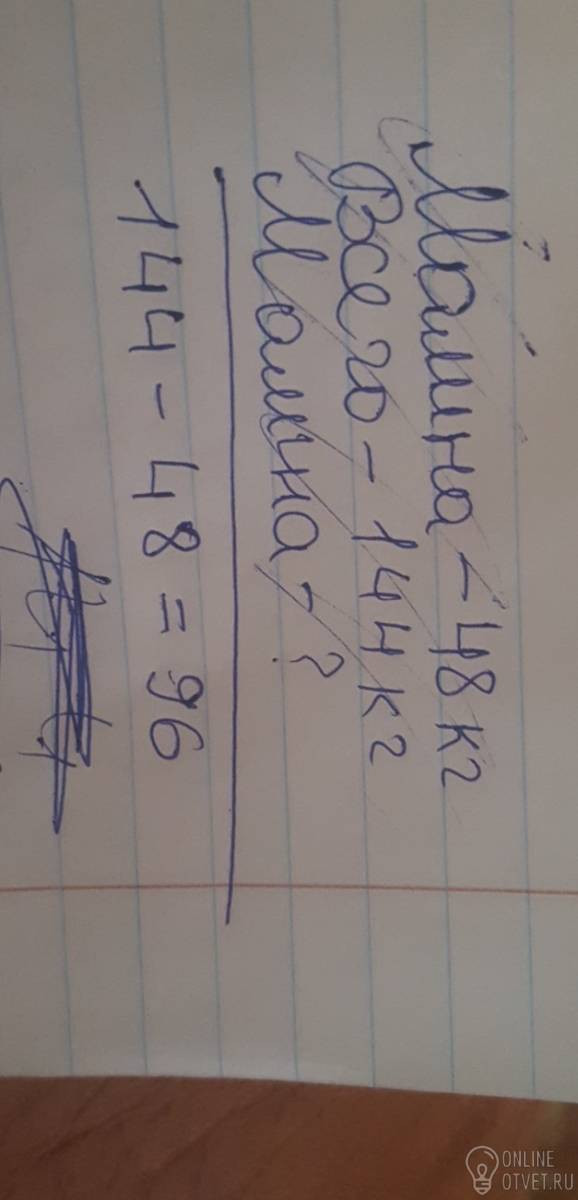 Малина - 48 кг
Всего - 144 кг
Малина - ?
144 - 48 = 96
ONLINE
OTVET.RU